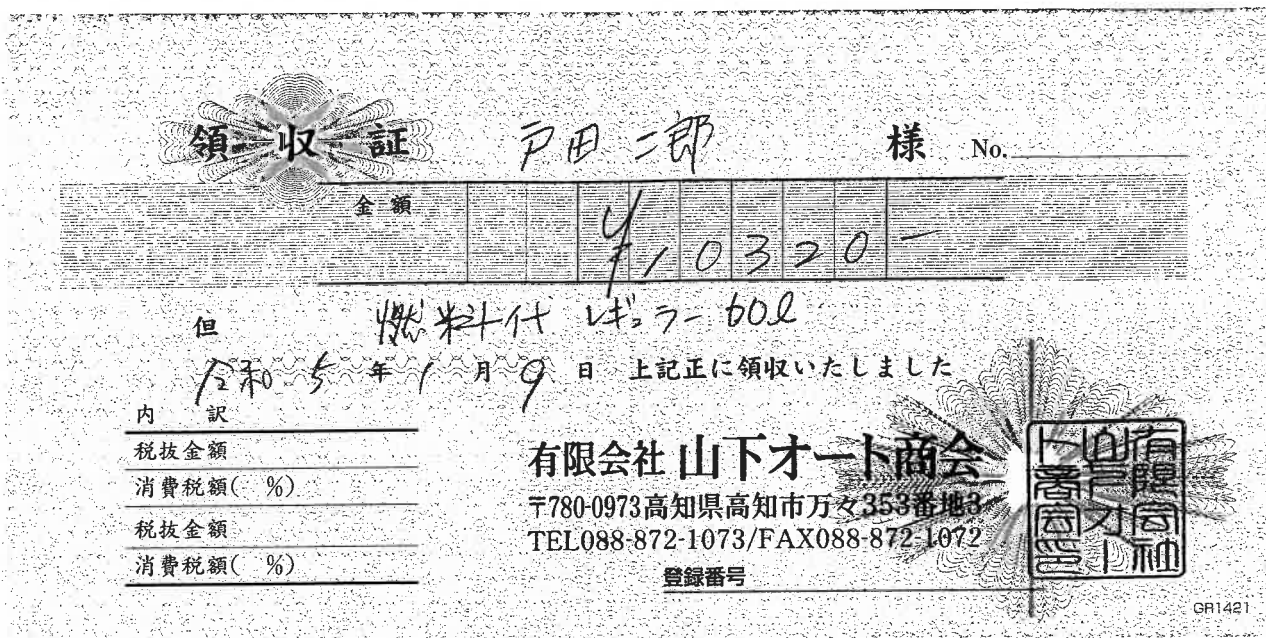 領収証 戸田二郎 様 No.
金額 ¥10320-
但 燃料代 レギュラー 60ℓ
令和 5 年 1 月 9 日 上記正に領収いたしました
内 訳
税抜金額
消費税額( %)
税抜金額
消費税額( %)
有限会社 山下オート商会
〒780-0973高知県高知市万々353番地3
TEL088-872-1073/FAX088-872-1072
登録番号
有限会社山下オート商会印
GR1421